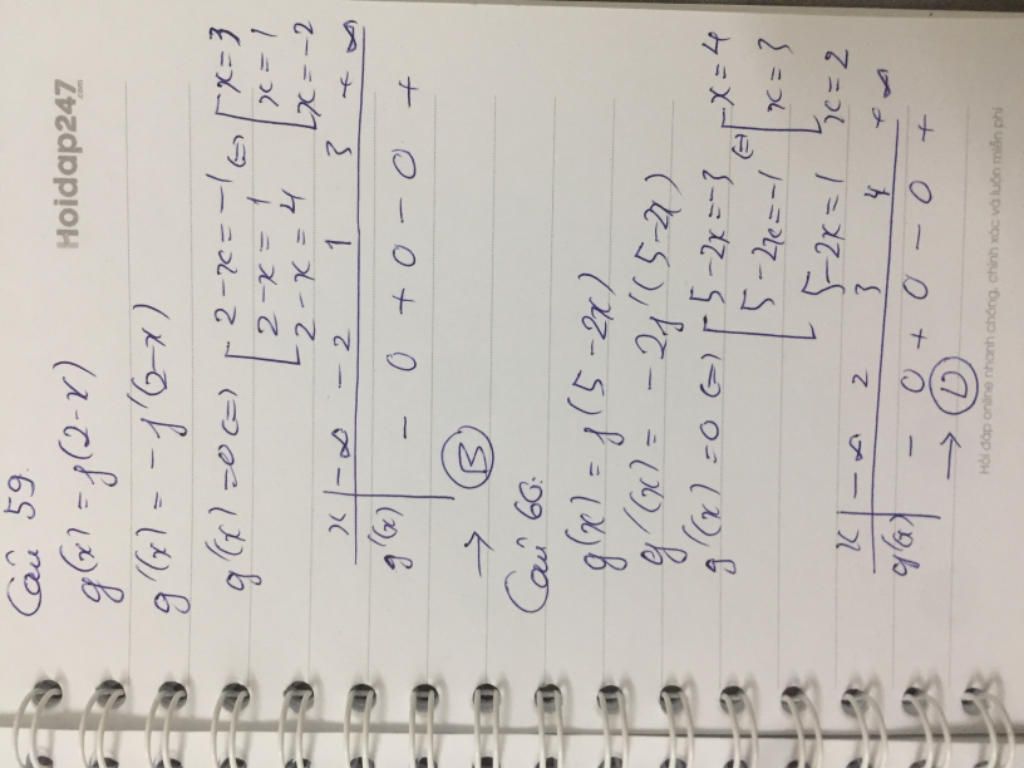 Hoidap247
.com
Câu 59.
g(x) = f(2-x)
g'(x) = - f'(2-x)
g'(x) = 0 <=> [ 2-x = -1 <=> [ x = 3
2-x = 1 x = 1
2-x = 4 x = -2
x -∞ -2 1 3 +∞
g'(x) - 0 + 0 - 0 +
→ B
Câu 60.
g(x) = f(5-2x)
g'(x) = - 2f'(5-2x)
g'(x) = 0 <=> [ 5-2x = -3 <=> [ x = 4
5-2x = -1 x = 3
5-2x = 1 x = 2
x -∞ 2 3 4 +∞
g'(x) - 0 + 0 - 0 +
→ D
Hỏi đáp online nhanh chóng, chính xác và luôn miễn phí